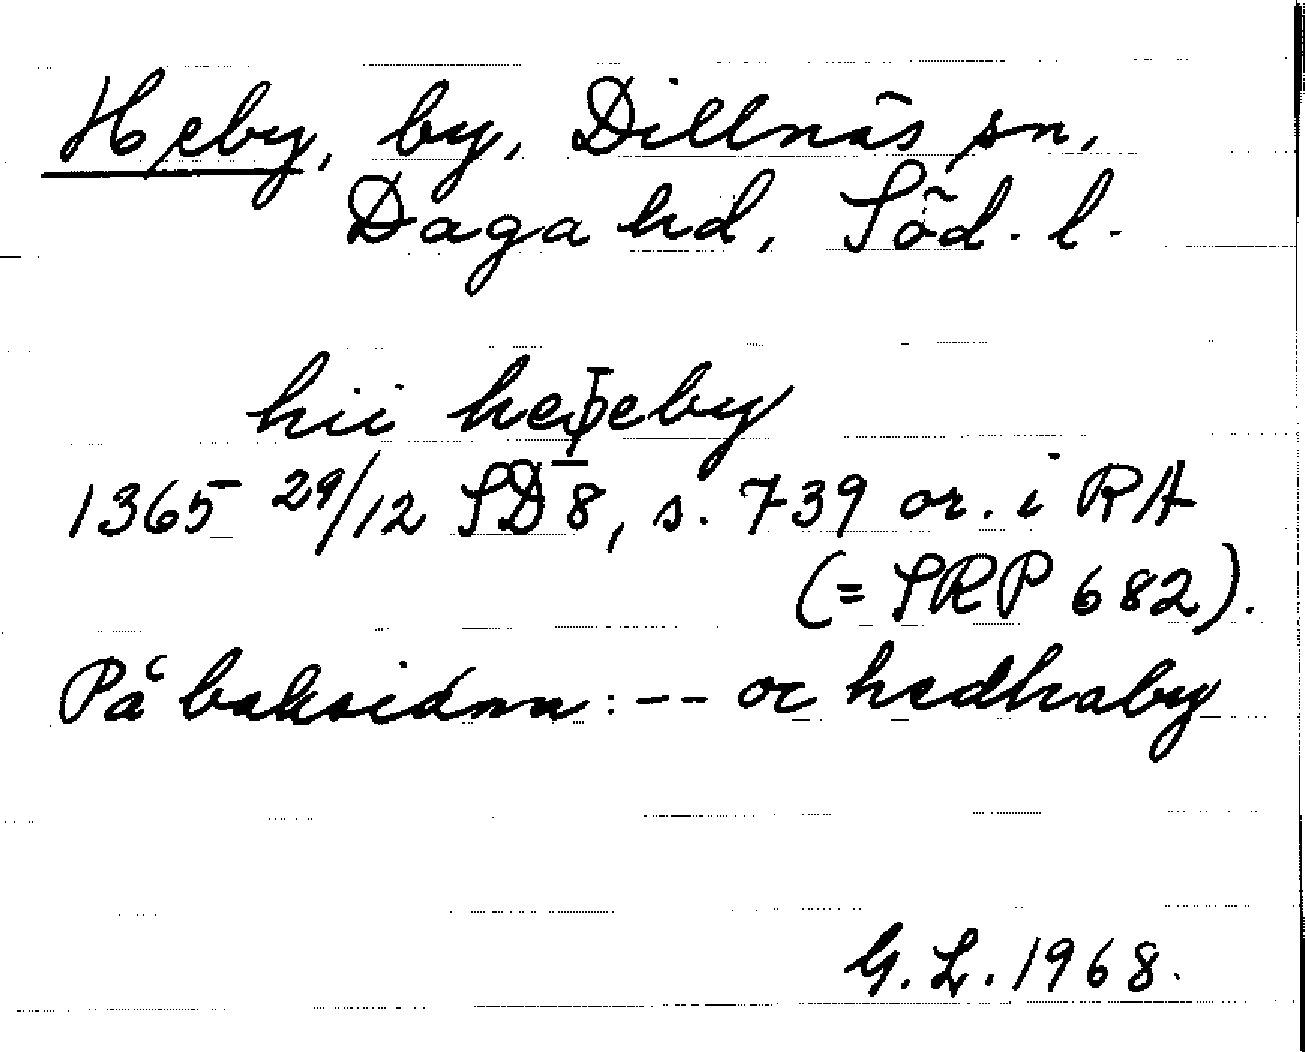 Heby, by, Dillnäs sn,
Daga hd, Söd. l.
hii heþeby
1365 29/12 SD 8, s. 739 or. i RA
(= SRP 682).
På baksidan: -- oc hedhaby
G. L. 1968.